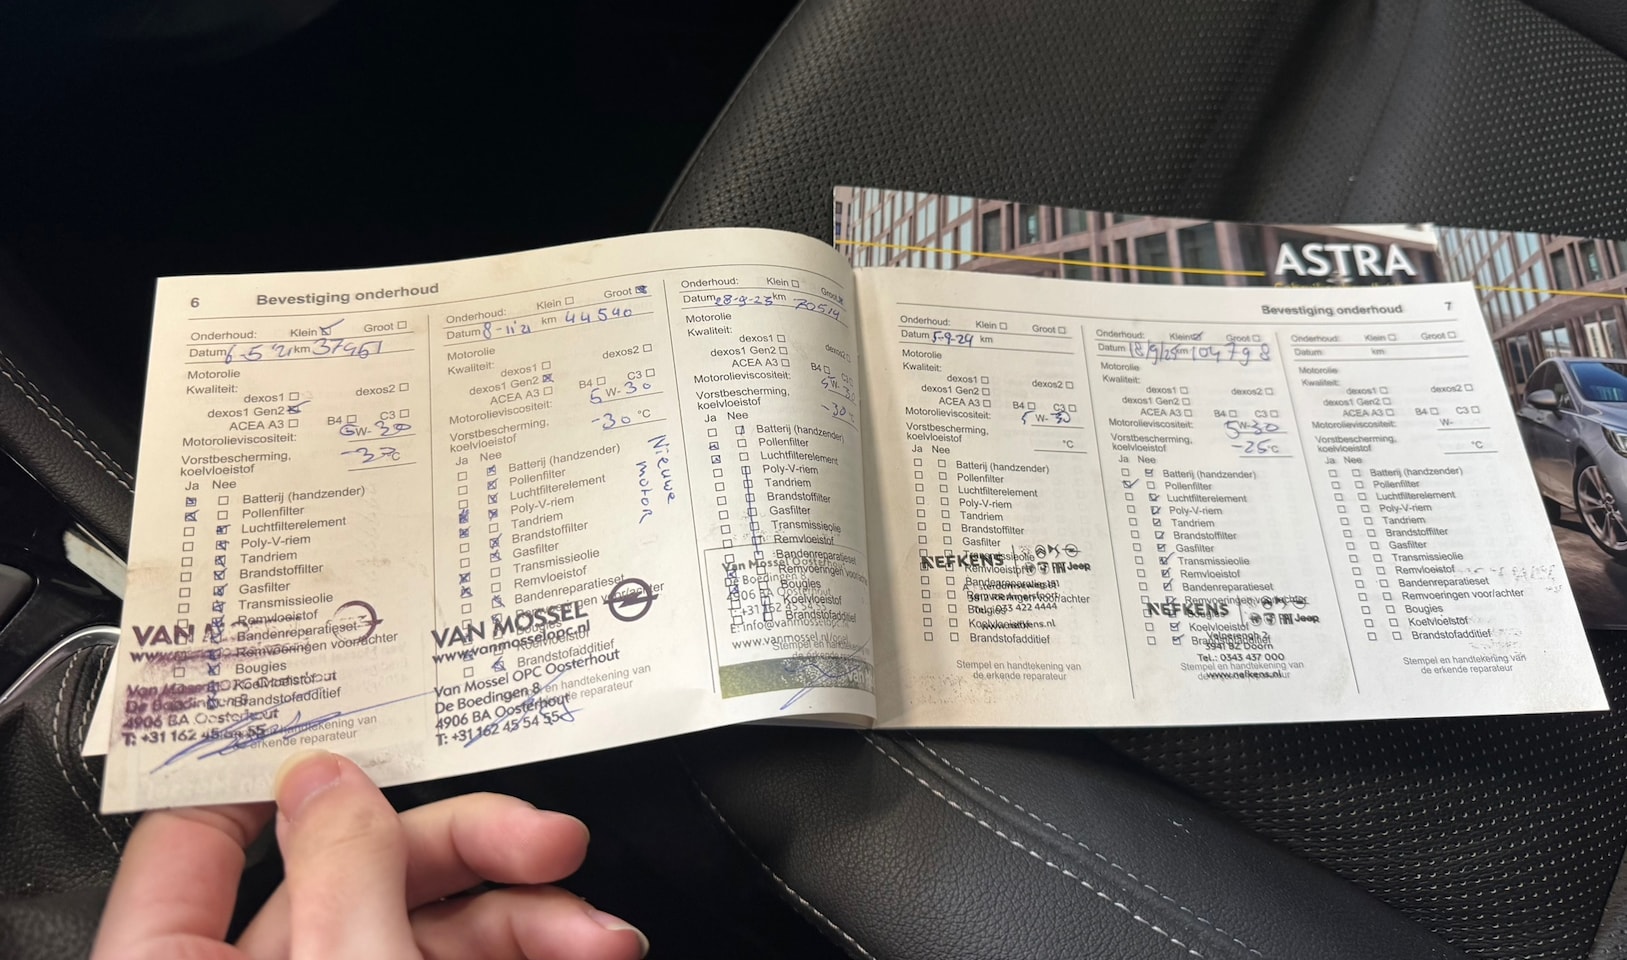 6
Bevestiging onderhoud
Onderhoud: Klein Groot
Datum 6-5'21 km 37961
Motorolie
Kwaliteit:
dexos1 dexos2
dexos1 Gen2
ACEA A3 B4 C3
Motorolieviscositeit: 5W-30
Vorstbescherming,
koelvloeistof °C
Ja Nee
Batterij (handzender)
Pollenfilter
Luchtfilterelement
Poly-V-riem
Tandriem
Brandstoffilter
Gasfilter
Transmissieolie
Remvloeistof
Bandenreparatieset
Remvoeringen voor/achter
Bougies
Koelvloeistof
Brandstofadditief
VAN
Van Mossel OPC Oosterhout
De Boedingen 8
4906 BA Oosterhout
T: +31 162 45 54 55
Stempel en handtekening van
de erkende reparateur
Onderhoud: Klein Groot
Datum 8-11'21 km 44540
Motorolie
Kwaliteit:
dexos1 dexos2
dexos1 Gen2
ACEA A3 B4 C3
Motorolieviscositeit: 5W-30
Vorstbescherming,
koelvloeistof -30 °C
Ja Nee
Batterij (handzender)
Pollenfilter
Luchtfilterelement
Poly-V-riem
Tandriem
Brandstoffilter
Gasfilter
Transmissieolie
Remvloeistof
Bandenreparatieset
Remvoeringen voor/achter
Koelvloeistof
Brandstofadditief
Nieuwe motor
VAN MOSSEL
www.vanmosselopc.nl
Van Mossel OPC Oosterhout
De Boedingen 8
4906 BA Oosterhout
T: +31 162 45 54 55
en handtekening van
de erkende reparateur
Onderhoud: Klein Groot
Datum 28-9-23 km 70514
Motorolie
Kwaliteit:
dexos1 dexos2
dexos1 Gen2
ACEA A3 B4 C3
Motorolieviscositeit: 5W-30
Vorstbescherming,
koelvloeistof -30
Ja Nee
Batterij (handzender)
Pollenfilter
Luchtfilterelement
Poly-V-riem
Tandriem
Brandstoffilter
Gasfilter
Transmissieolie
Remvloeistof
Bandenreparatieset
Remvoeringen voor/achter
Bougies
Koelvloeistof
Brandstofadditief
Van Mossel Oosterhout
De Boedingen 8
4906 BA Oosterhout
www.vanmossel.nl/opel
Stempel en handtekening van
de erkende reparateur
Bevestiging onderhoud
7
Onderhoud: Klein Groot
Datum 5-9-24 km
Motorolie
Kwaliteit:
dexos1 dexos2
dexos1 Gen2
ACEA A3 B4 C3
Motorolieviscositeit: 5W-30
Vorstbescherming,
koelvloeistof °C
Ja Nee
Batterij (handzender)
Pollenfilter
Luchtfilterelement
Poly-V-riem
Tandriem
Brandstoffilter
Gasfilter
Transmissieolie
Remvloeistof
Bandenreparatieset
Remvoeringen voor/achter
Bougies
Koelvloeistof
Brandstofadditief
NEFKENS
Jeep
Amersfoort
Tel.: 033 422 4444
www.nefkens.nl
Stempel en handtekening van
de erkende reparateur
Onderhoud: Klein Groot
Datum 18/9/25 km 104798
Motorolie
Kwaliteit:
dexos1 dexos2
dexos1 Gen2
ACEA A3 B4 C3
Motorolieviscositeit: 5W-30
Vorstbescherming,
koelvloeistof -25°C
Ja Nee
Batterij (handzender)
Pollenfilter
Luchtfilterelement
Poly-V-riem
Tandriem
Brandstoffilter
Gasfilter
Transmissieolie
Remvloeistof
Bandenreparatieset
Remvoeringen voor/achter
Koelvloeistof
Brandstofadditief
NEFKENS
Jeep
3941 BZ Doorn
Tel.: 0343 437 000
www.nefkens.nl
Stempel en handtekening van
de erkende reparateur
Onderhoud: Klein Groot
Datum: km:
Motorolie
Kwaliteit:
dexos1 dexos2
dexos1 Gen2
ACEA A3 B4 C3
Motorolieviscositeit: W-
Vorstbescherming,
koelvloeistof °C
Ja Nee
Batterij (handzender)
Pollenfilter
Luchtfilterelement
Poly-V-riem
Tandriem
Brandstoffilter
Gasfilter
Transmissieolie
Remvloeistof
Bandenreparatieset
Remvoeringen voor/achter
Bougies
Koelvloeistof
Brandstofadditief
Stempel en handtekening van
de erkende reparateur
ASTRA